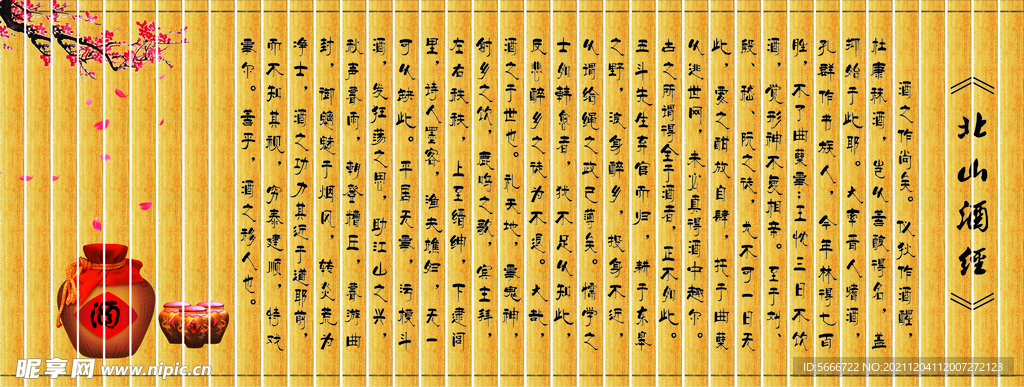 《北山酒經》
酒之作尚矣。仪狄作酒醪，
杜康秫酒，岂以善酿得名，盖
抑始于此耶。大率晋人嗜酒，
孔群作书族人，今年秫得七百
斛，不了曲蘖事…王忱三日不饮
酒，觉形神不复相亲。至于刘、
殷、嵇、阮之徒，尤不可一日无
此。爱之酣放自肆，托于曲蘖
以逃世网，未必真得酒中趣尔。
古之所谓得全于酒者，正不如此。
五斗先生弃官而归，耕于东皋
之野，浪身醉乡，投身不近，
以谓结绳之政已薄矣。懦学之
士如韩愈者，犹不足以知此，
反悲醉乡之徒为不遇。大哉，
酒之于世也。礼天地，事鬼神，
射乡之饮，鹿鸣之歌，宾主拜，
左右秩秩，上至缙绅，下逮闾
里，诗人墨客，渔夫樵妇，无一
可以缺此。平居无事，污樽斗
酒，发狂荡之思，助江山之兴，
秋声暮雨，朝登糟丘，暮游曲
封，御魑魅于烟风，转炎荒为
净土，酒之功力其近于道耶前，
而不知其视，穷泰违顺，特戏
事尔。善乎，酒之移人也。
酒
昵享网 www.nipic.cn
ID:5666722 NO:20211204112007272123